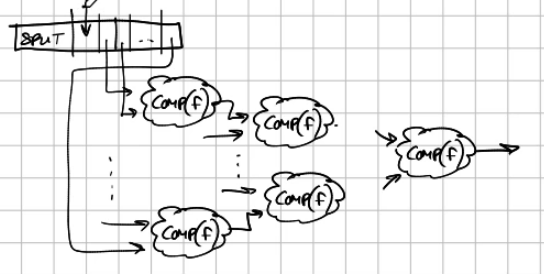 SPLIT ...
COMP(f)
COMP(f)
COMP(f)
COMP(f)
COMP(f)